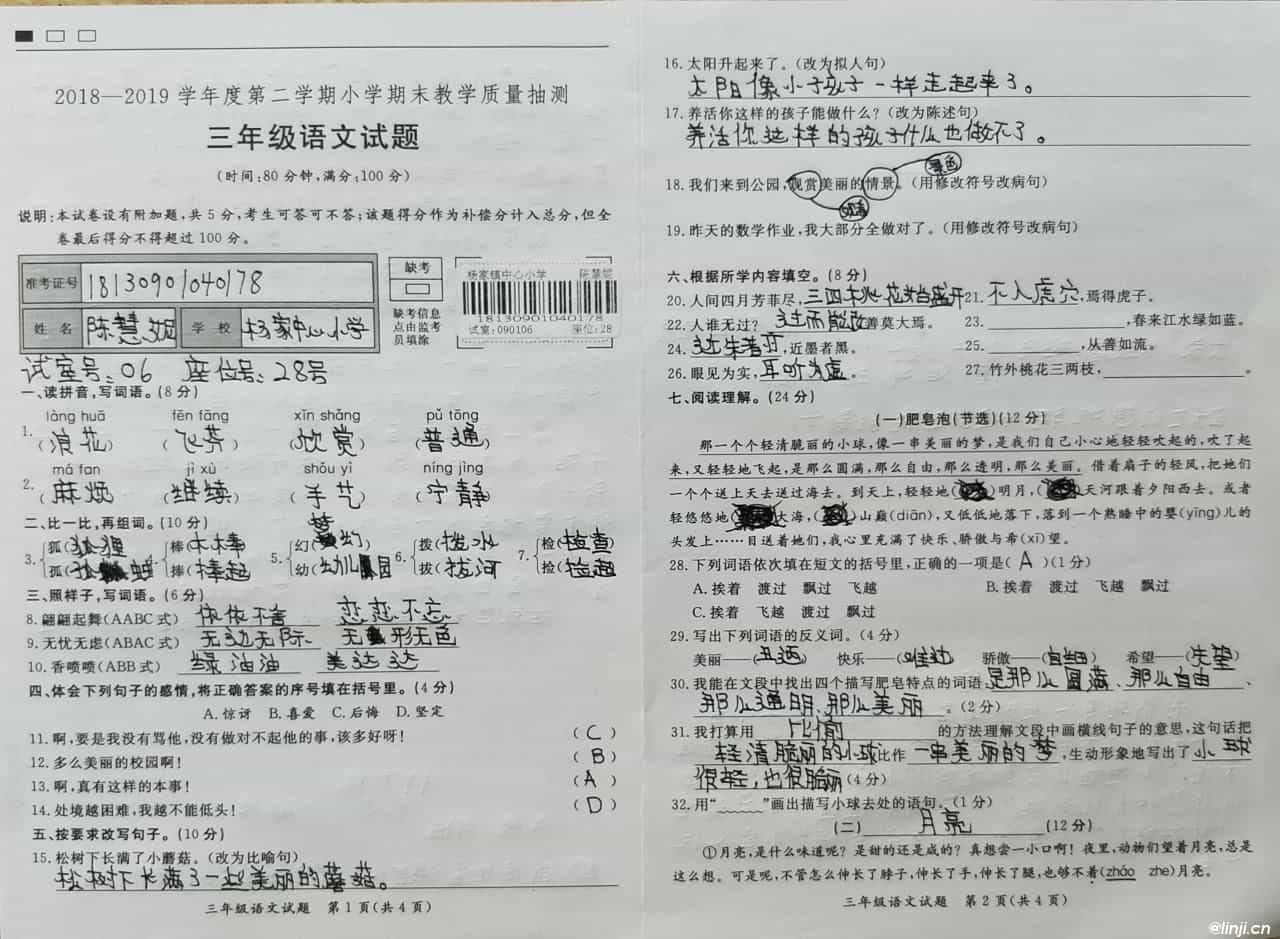 2018—2019 学年度第二学期小学期末教学质量抽测
三年级语文试题
(时间:80 分钟,满分:100 分)
说明:本试卷设有附加题,共 5 分,考生可答可不答;该题得分作为补偿分计入总分,但全
卷最后得分不得超过 100 分。
准考证号 18130901040178
姓 名 陈慧妮 学 校 杨家中心小学
缺考
缺考信息
点由监考
员填涂
杨家镇中心小学 陈慧妮
18130901040178
试室:090106 座位:28
试室号:06 座位号:28号
一、读拼音,写词语。(8 分)
làng huā fēn fāng xīn shǎng pǔ tōng
1.(浪花) (飞芬) (欣赏) (普通)
má fan jì xù shǒu yì níng jìng
2.(麻烦) (继续) (手艺) (宁静)
二、比一比,再组词。(10 分)
3. 狐(狐狸 4. 棒(木棒 5. 幻(梦幻 6. 拨(拨水 7. 检(检查)
孤( 捧(棒起 幼(幼儿园 拔(拔河 捡(捡起
三、照样子,写词语。(6 分)
8. 翩翩起舞(AABC 式) 依依不舍 恋恋不忘
9. 无忧无虑(ABAC 式) 无边无际 无形无色
10. 香喷喷(ABB 式) 绿油油 美达达
四、体会下列句子的感情,将正确答案的序号填在括号里。(4 分)
A. 惊讶 B. 喜爱 C. 后悔 D. 坚定
11. 啊,要是我没有骂他,没有做对不起他的事,该多好呀! (C)
12. 多么美丽的校园啊! (B)
13. 啊,真有这样的本事! (A)
14. 处境越困难,我越不能低头! (D)
五、按要求改写句子。(10 分)
15. 松树下长满了小蘑菇。(改为比喻句)
松树下长满了一些美丽的蘑菇。
三年级语文试题 第 1 页(共 4 页)
16. 太阳升起来了。(改为拟人句)
太阳像小孩子一样走起来了。
17. 养活你这样的孩子能做什么?(改为陈述句)
养活你这样的孩子什么也做不了。
景色
18. 我们来到公园,观赏美丽的情景。(用修改符号改病句)
19. 昨天的数学作业,我大部分全做对了。(用修改符号改病句)
六、根据所学内容填空。(8 分)
20. 人间四月芳菲尽,三四桃花始盛开 21. 不入虎穴,焉得虎子。
22. 人谁无过? 过而能改善莫大焉。 23. ,春来江水绿如蓝。
24. 近朱者赤,近墨者黑。 25. ,从善如流。
26. 眼见为实,耳听为虚。 27. 竹外桃花三两枝, 。
七、阅读理解。(24 分)
(一)肥皂泡(节选)(12 分)
那一个个轻清脆丽的小球,像一串美丽的梦,是我们自己小心地轻轻吹起的,吹了起
来,又轻轻地飞起,是那么圆满,那么自由,那么透明,那么美丽。借着扇子的轻风,把她们
一个个送上天去送过海去。到天上,轻轻地( )明月,( )天河跟着夕阳西去。或者
轻悠悠地( )大海,( )山巅(diān),又低低地落下,落到一个熟睡中的婴(yīng)儿的
头发上……目送着她们,我心里充满了快乐、骄傲与希(xī)望。
28. 下列词语依次填在短文的括号里,正确的一项是( A )(1 分)
A. 挨着 渡过 飘过 飞越 B. 挨着 渡过 飞越 飘过
C. 挨着 飞越 渡过 飘过
29. 写出下列词语的反义词。(4 分)
美丽——(丑陋) 快乐——(难过) 骄傲——( ) 希望——(失望)
30. 我能在文段中找出四个描写肥皂特点的词语:是那么圆满、那么自由、
那么透明、那么美丽。(2 分)
31. 我打算用 比愉 的方法理解文段中画横线句子的意思,这句话把
轻清脆丽的小球比作 一串美丽的梦,生动形象地写出了小球
很轻,也很脆丽(4 分)
32. 用“ ”画出描写小球去处的语句。(1 分)
(二) 月亮 (12 分)
①月亮,是什么味道呢?是甜的还是咸的?真想尝一小口啊!夜里,动物们望着月亮,总是
这么想。可是呢,不管怎么伸长了脖子,伸长了手,伸长了腿,也够不着(zháo zhe)月亮。
三年级语文试题 第 2 页(共 4 页)
@linji.cn